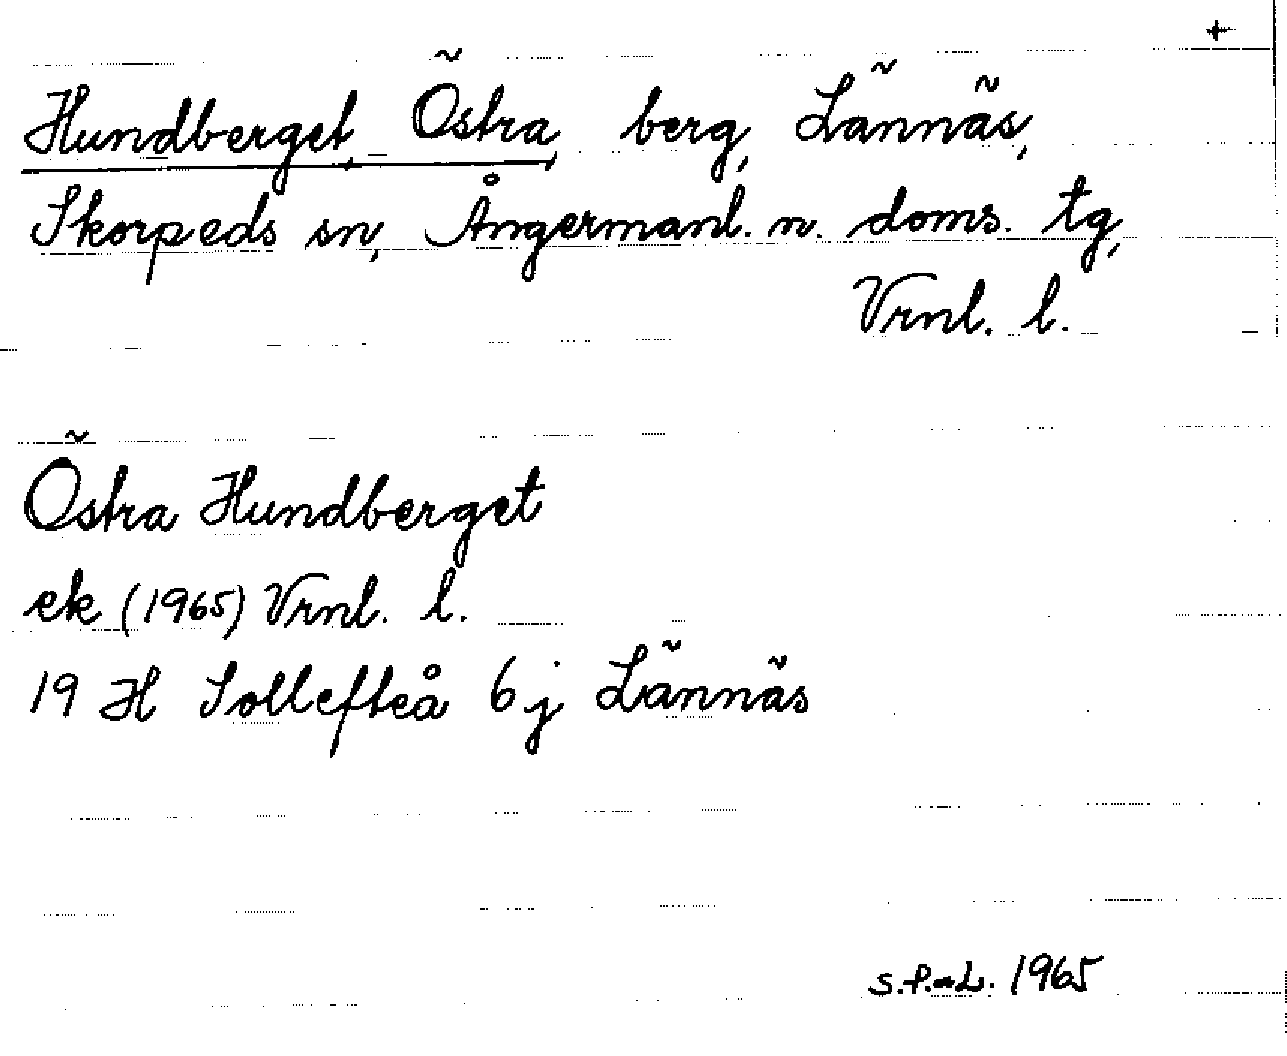 +
Hundberget, Östra, berg, Lännäs,
Skorpeds sn, Ångermanl. n. doms. tg,
Vrnl. l.
Östra Hundberget
ek (1965) Vrnl. l.
19 H Sollefteå 6 j Lännäs
1965